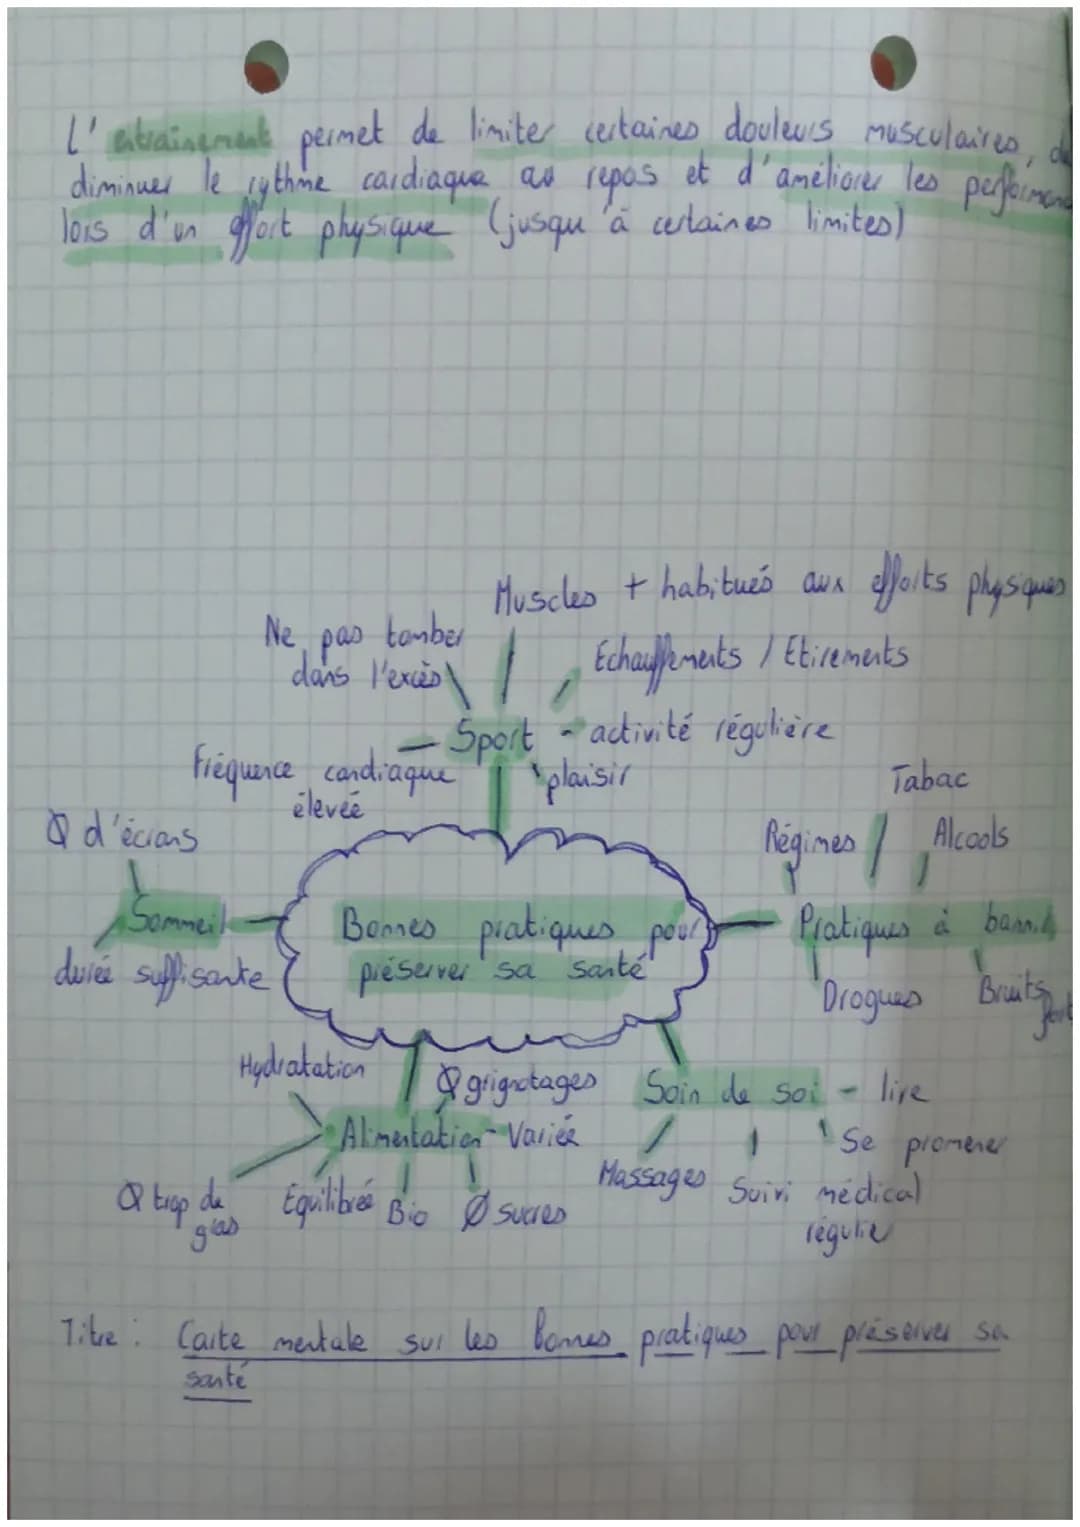 L'entraînement permet de limiter certaines douleurs musculaires, d
diminuer le rythme cardiaque au repos et d'améliorer les performanc
lors d'un effort physique (jusqu'à certaines limites)
Muscles + habitués aux efforts physiques
Ne pas tomber
dans l'excès
Echauffements / Etirements
Sport - activité régulière
Fréquence cardiaque
élevée
plaisir
Tabac
Ø d'écrans
Régimes
Alcools
Sommeil
Bonnes pratiques pour
préserver sa santé
Pratiques à bannir
durée suffisante
Drogues
Bruits
fort
Hydratation
Ø grignotages
Soin de soi - lire
Alimentation - Variée
Se promener
Massages
Suivi médical
régulier
Ø trop de
gras
Equilibrée
Bio
Ø sucres
Titre : Carte mentale sur les bonnes pratiques pour préserver sa
santé